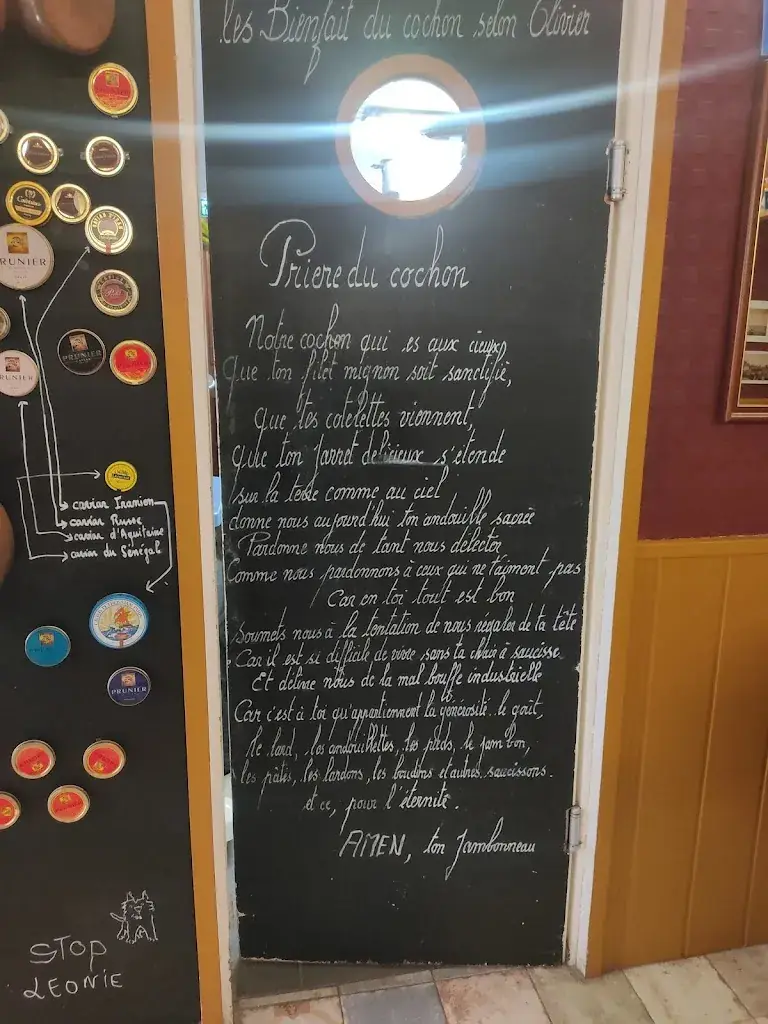 les Bienfait du cochon selon Olivier
Priere du cochon
Notre cochon qui es aux cieux,
Que ton filet mignon soit sanctifié,
que tes cotelettes viennent,
que ton jarret delicieux s'étende
sur la terre comme au ciel
donne nous aujourd'hui ton andouille sacrée
Pardonne nous de tant nous délecter
Comme nous pardonnons à ceux qui ne t'aiment pas
Car en toi tout est bon
Soumets nous à la tentation de nous régaler de ta tête
Car il est si difficile de vivre sans ta chair à saucisse
Et délivre nous de la mal bouffe industrielle
Car c'est à toi qu'appartiennent la générosité le goût,
le lard, les andouillettes, les pieds, le jambon,
les pâtés, les lardons, les boudins et autres saucissons.
et ce, pour l'éternité.
AMEN, ton Jambonneau
PRUNIER
PRUNIER
PRUNIER
caviar Iranien
caviar Russe
caviar d'Aquitaine
caviar du Sénégal
PRUNIER
STOP
LEONIE